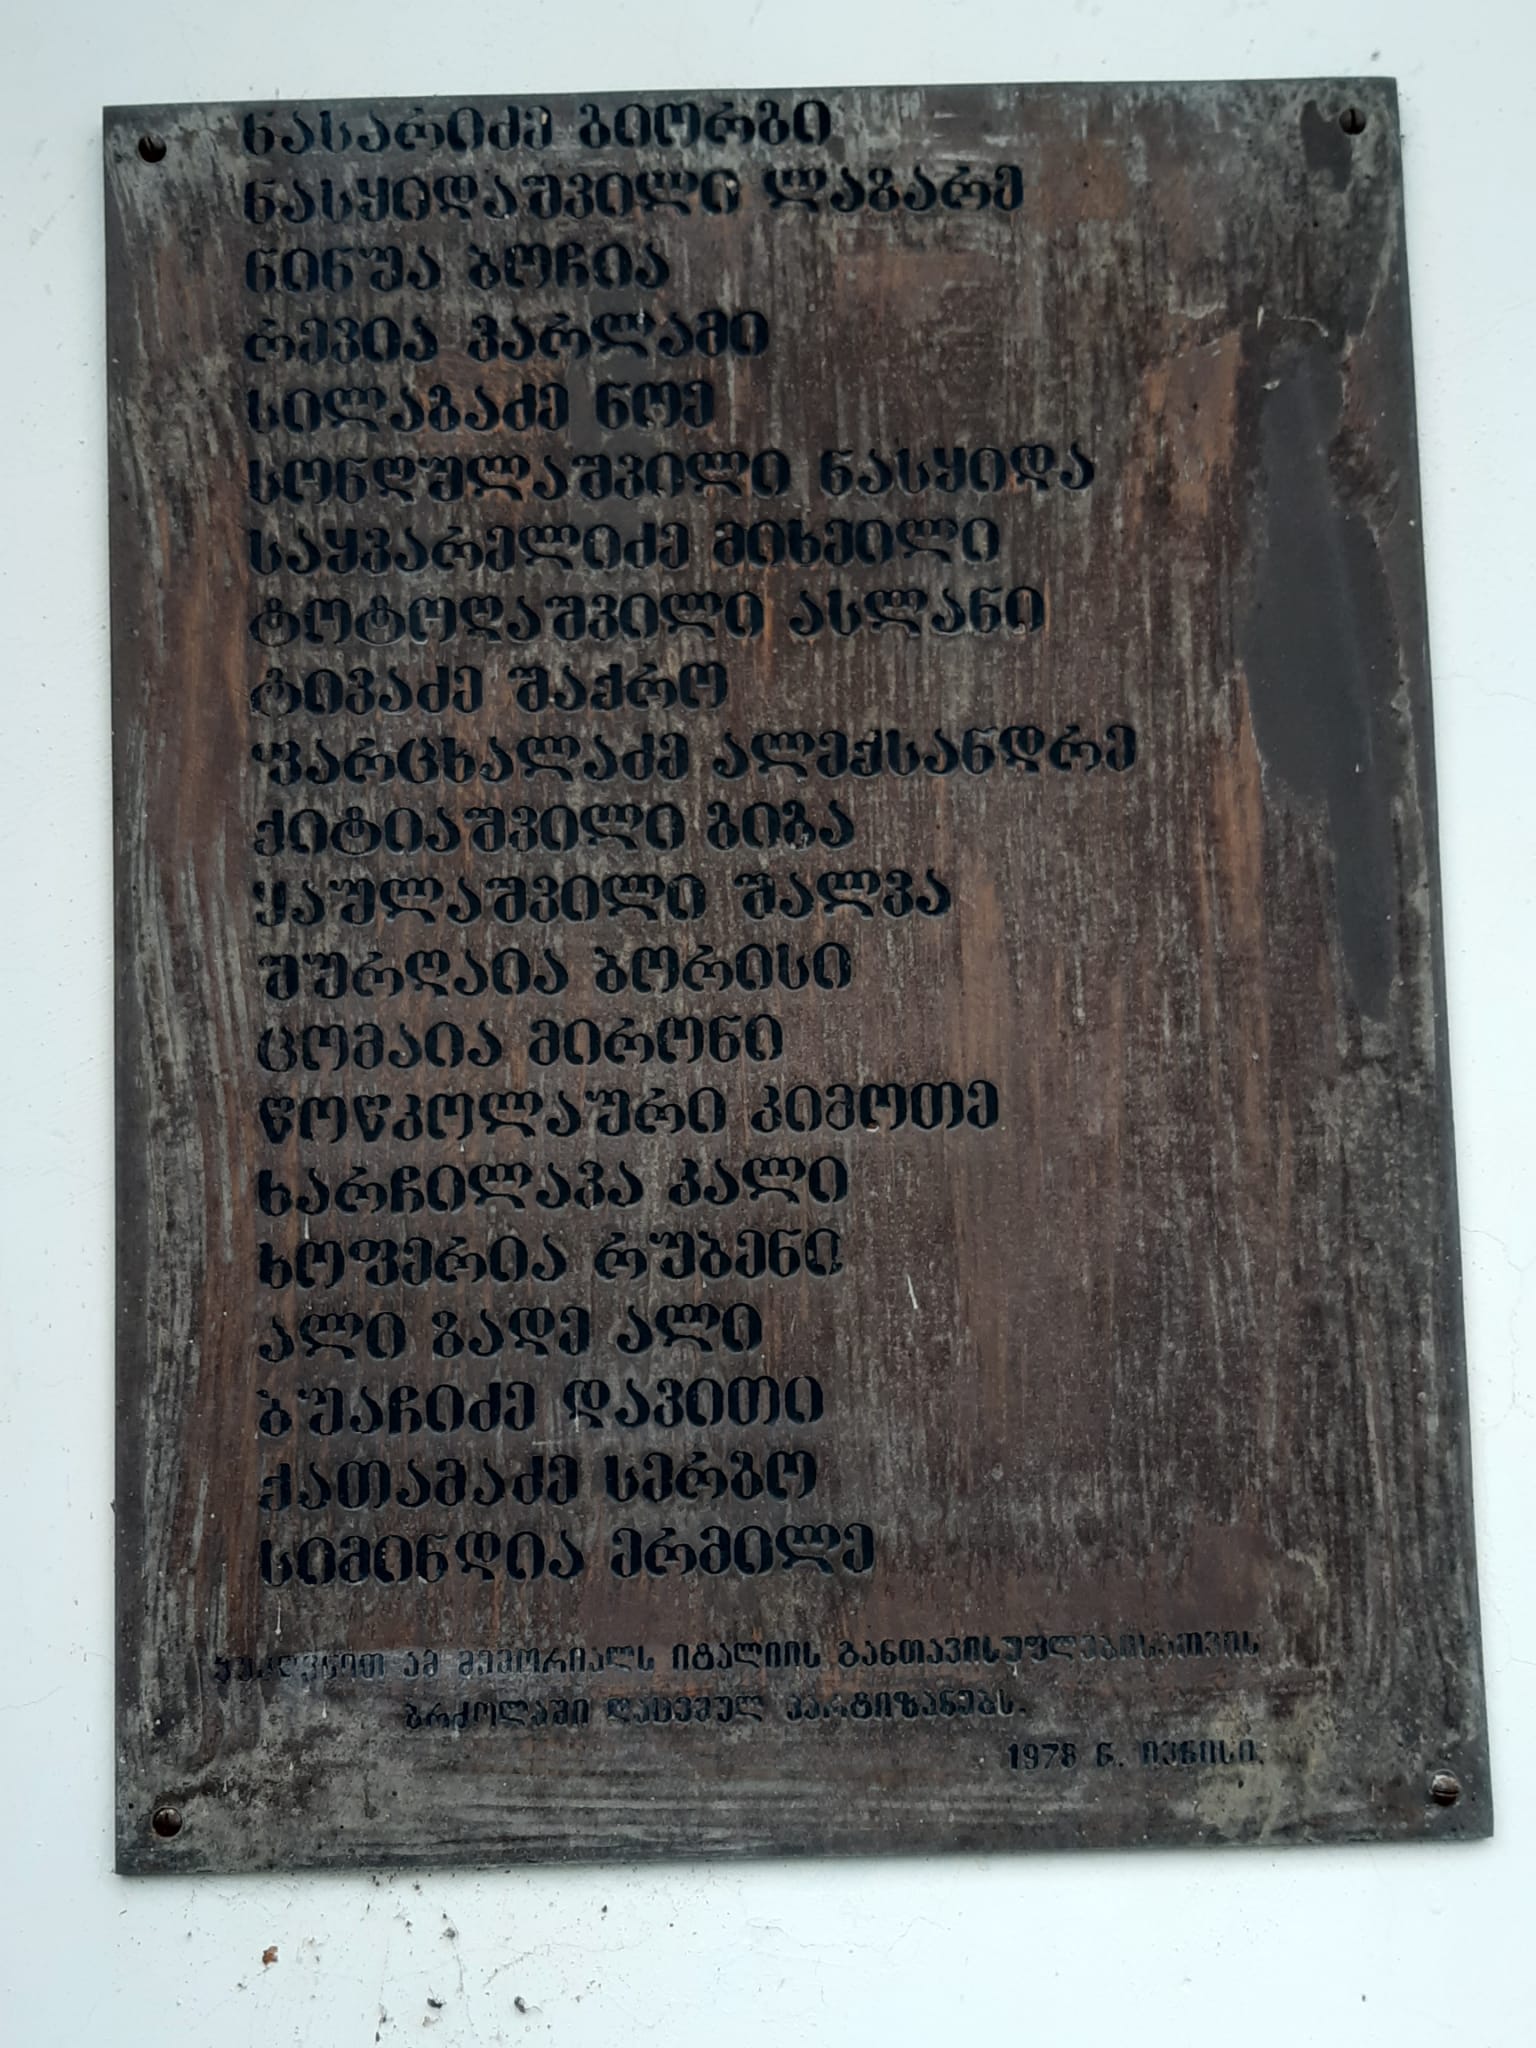 ნასარიძე გიორგი
ნასყიდაშვილი ლაზარე
ნინუა ბოჩია
რევია ვარლამი
სილაგაძე ნოე
სონღულაშვილი ნასყიდა
საყვარელიძე მიხეილი
ტოტოღაშვილი ასლანი
ტივაძე შაქრო
ფარცხალაძე ალექსანდრე
ქიტიაშვილი გიგა
ყაულაშვილი შალვა
შურღაია ბორისი
ცომაია მირონი
წოწკოლაური კიმოთე
ხარჩილავა კალი
ხოფერია რუბენი
ალი ზადე ალი
ბუაჩიძე დავითი
ქათამაძე სერგო
სიმინდია ერმილე
ვუძღვნით ამ მემორიალს იტალიის განთავისუფლებისათვის
ბრძოლაში დაცემულ პარტიზანებს.
1978 წ. ივნისი.